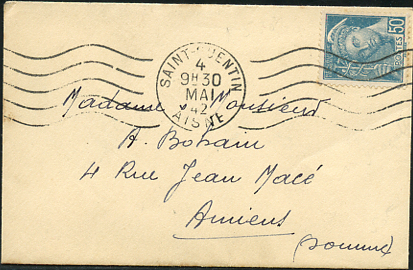 SAINT-QUENTIN
4
9H30
MAI
42
AISNE
50
POSTES
Madame Monsieur
A. Bohain
4 Rue Jean Macé
Amiens
(Somme)